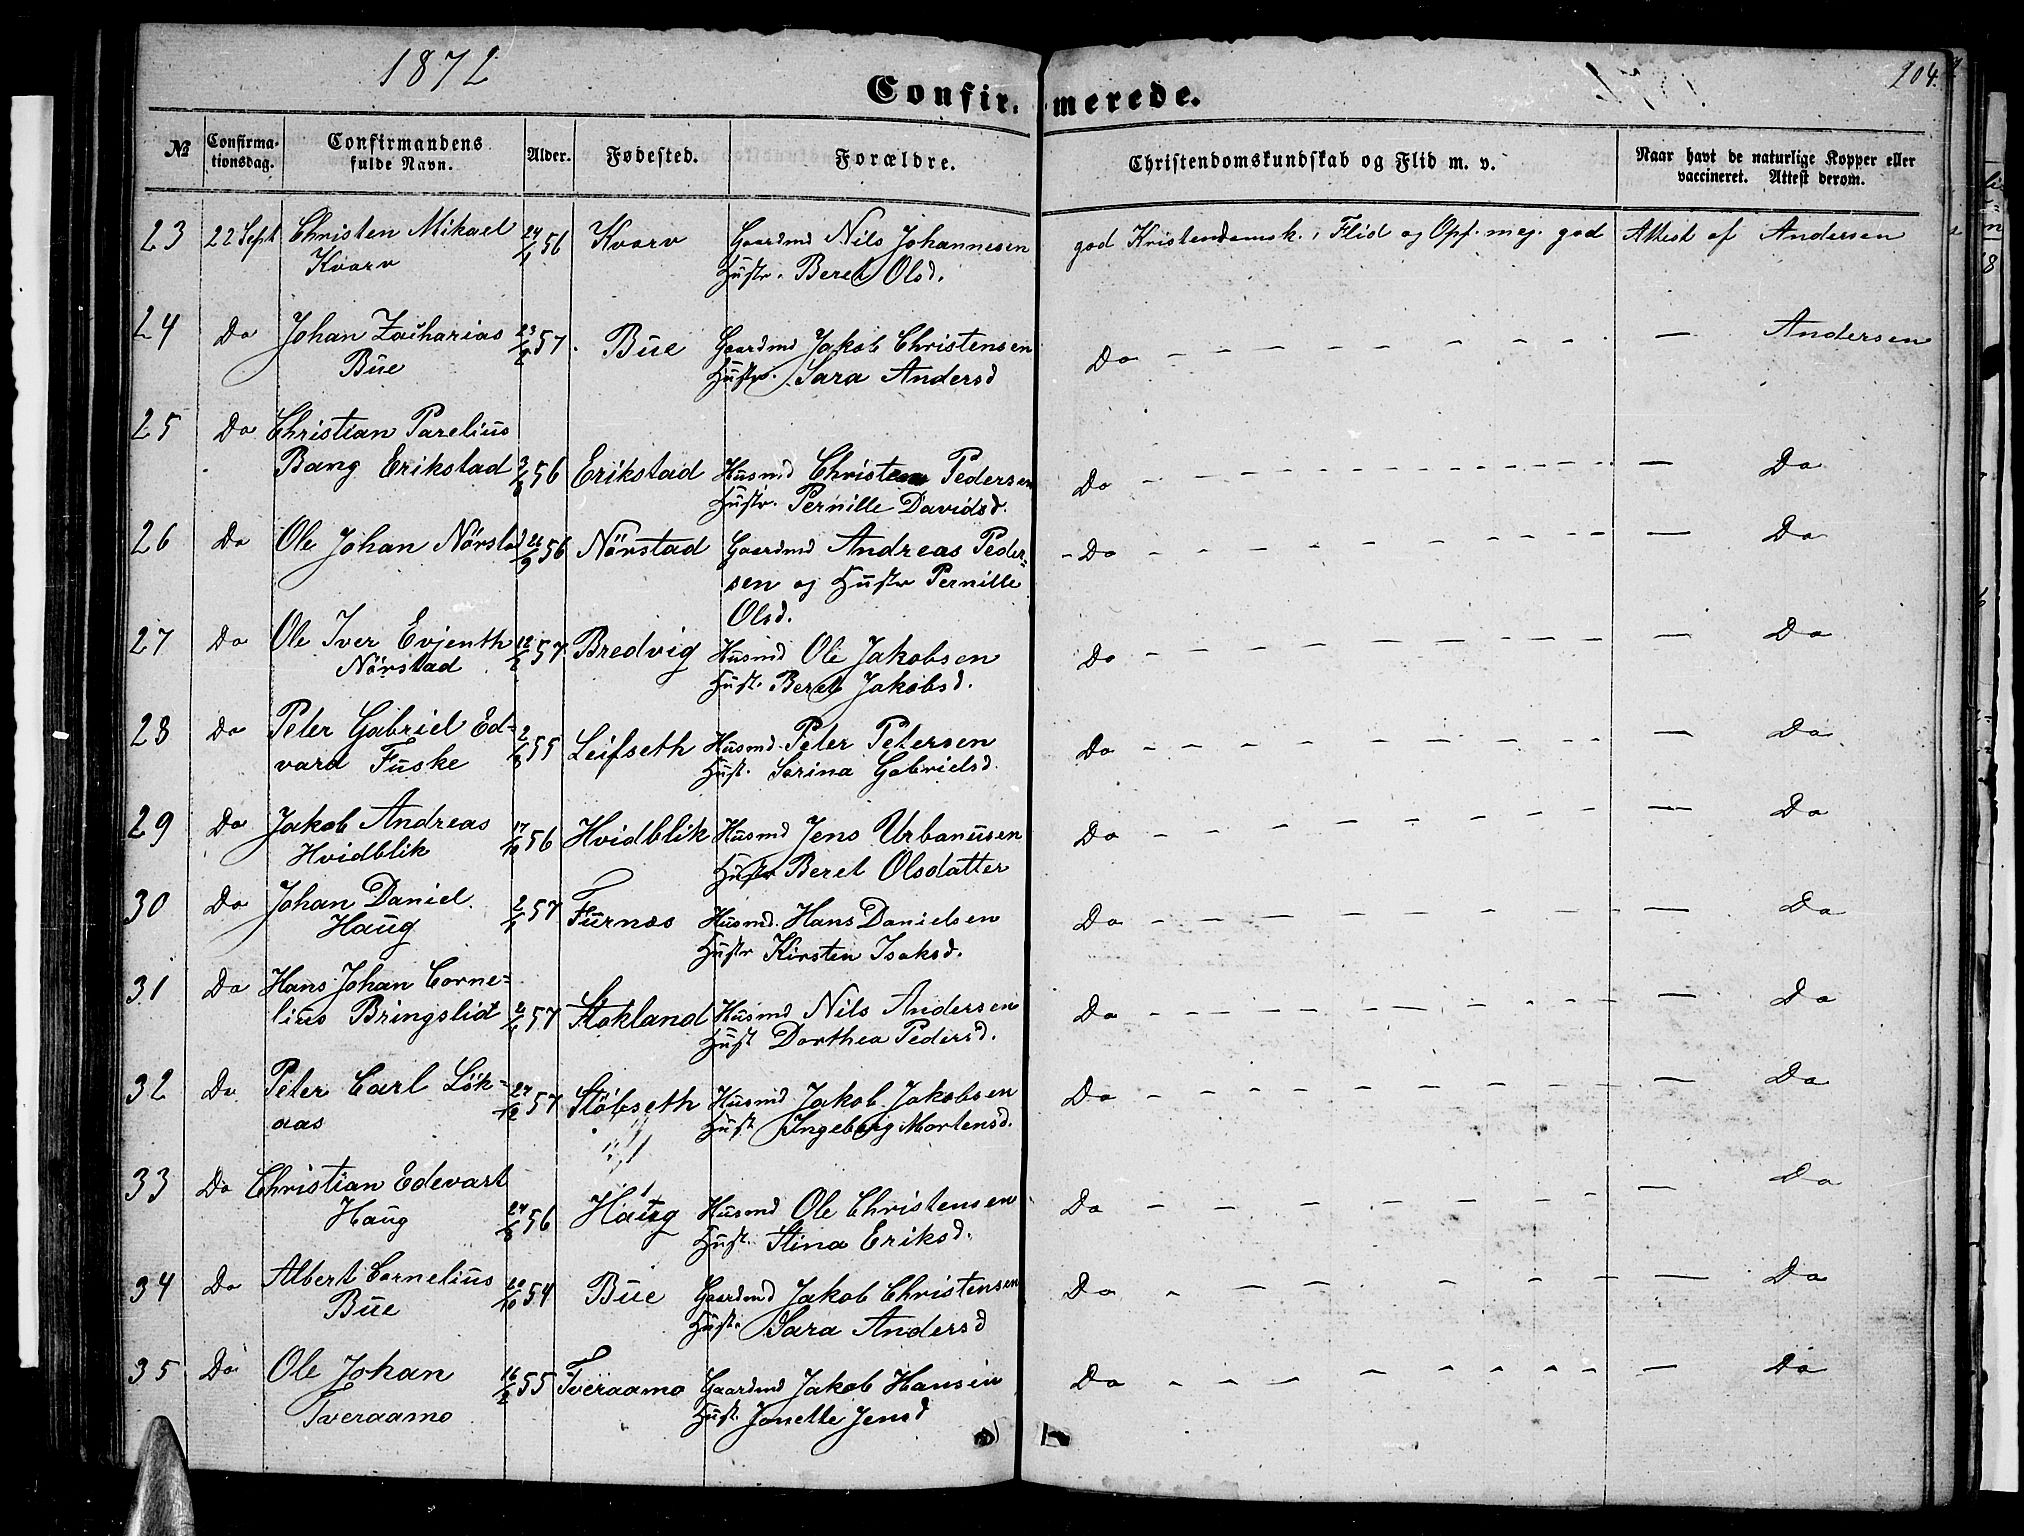 1872
Confirmerede.
204.
№ Confirmationsdag. Confirmandens fulde Navn. Alder. Fødested. Forældre. Christendomskundskab og Flid m. v. Naar havt de naturlige Kopper eller vaccineret. Attest derom.
23 22 Sept Christen Mikael 24/1 56 Kvarv Gaardmd Nils Johannesen god Kristendomsk., Flid og Opf. meg. god Attest af Andersen
Kvarv Hustr. Beret Olsd.
24 Do Johan Zacharias 23/2 57. Bue Gaardmd Jakob Christensen Do - - - - - - - - — Andersen
Bue Hustr. Sara Andersd
25 Do Christian Parelius
Bang Erikstad 3/8 56 Erikstad Husmd Christen Pedersen Do - - - - - - - - — Do
Hustr. Pernille Davidsd.
26 Do Ole Johan Nörstad 26/9 56 Nörstad Gaardmd Andreas Peder= - Do - - - - - - - - — Do
sen og Hustr Pernille
Olsd.
27 Do Ole Iver Evjenth 12/2 57 Bredvig Husmd Ole Jakobsen Do - - - - - - - - — Do
Nörstad Hust. Beret Jakobsd.
28 Do Peter Gabriel Ed= 2/8 55 Leifseth Husmd. Peter Petersen Do - - - - - - - - — Do
vard Fuske Hust. Sarina Gabrielsd.
29 Do Jakob Andreas 17/10 56 Hvidblik Husmd Jens Urbanusen Do - - - - - - - - — Do
Hvidblik Hustr Beret Olsdatter
30 Do Johan Daniel 2/1 57 Furnes Husmd. Hans Danielsen Do - - - - - - - - — Do
Haug Hustr Kirsten Isaksd.
31 Do Hans Johan Corne= 2/1 57 Stokland Husmd Nils Andersen Do - - - - - - - - — Do
lius Bringslid Hust Dorthea Pedersd.
32 Do Peter Carl Lök= 27/10 57 Stöbseth Husmd Jakob Jakobsen Do - - - - - - - - — Do
aas Hust Ingeborg Mortensd.
33 Do Christian Edevart
Haug 24/8 56 Haug Husmd Ole Christensen Do - - - - - - - - — Do
Hust. Stina Eriksd.
34 Do Albert Cornelius 20/10 54 Bue Gaardmd Jakob Christensen Do - - - - - - - — Do
Bue Hust. Sara Andersd
35 Do Ole Johan 16/2 55 Tveraamo Gaardmd Jakob Hansen Do - - - - - - - - — Do
Tveraamo Hust. Janette Jensd